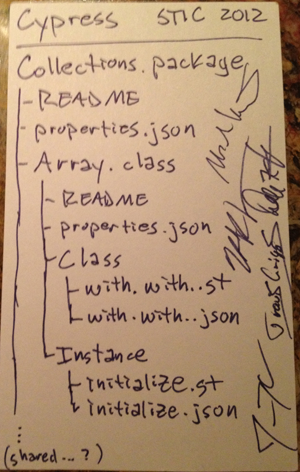 Cypress STIC 2012
Collections.package
README
properties.json
Array.class
README
properties.json
Class
with.with..st
with.with..json
Instance
initialize.st
initialize.json
...
(shared...?)